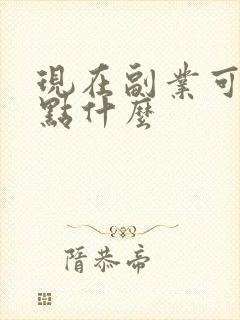 現在副業可
點什麼
隋恭帝